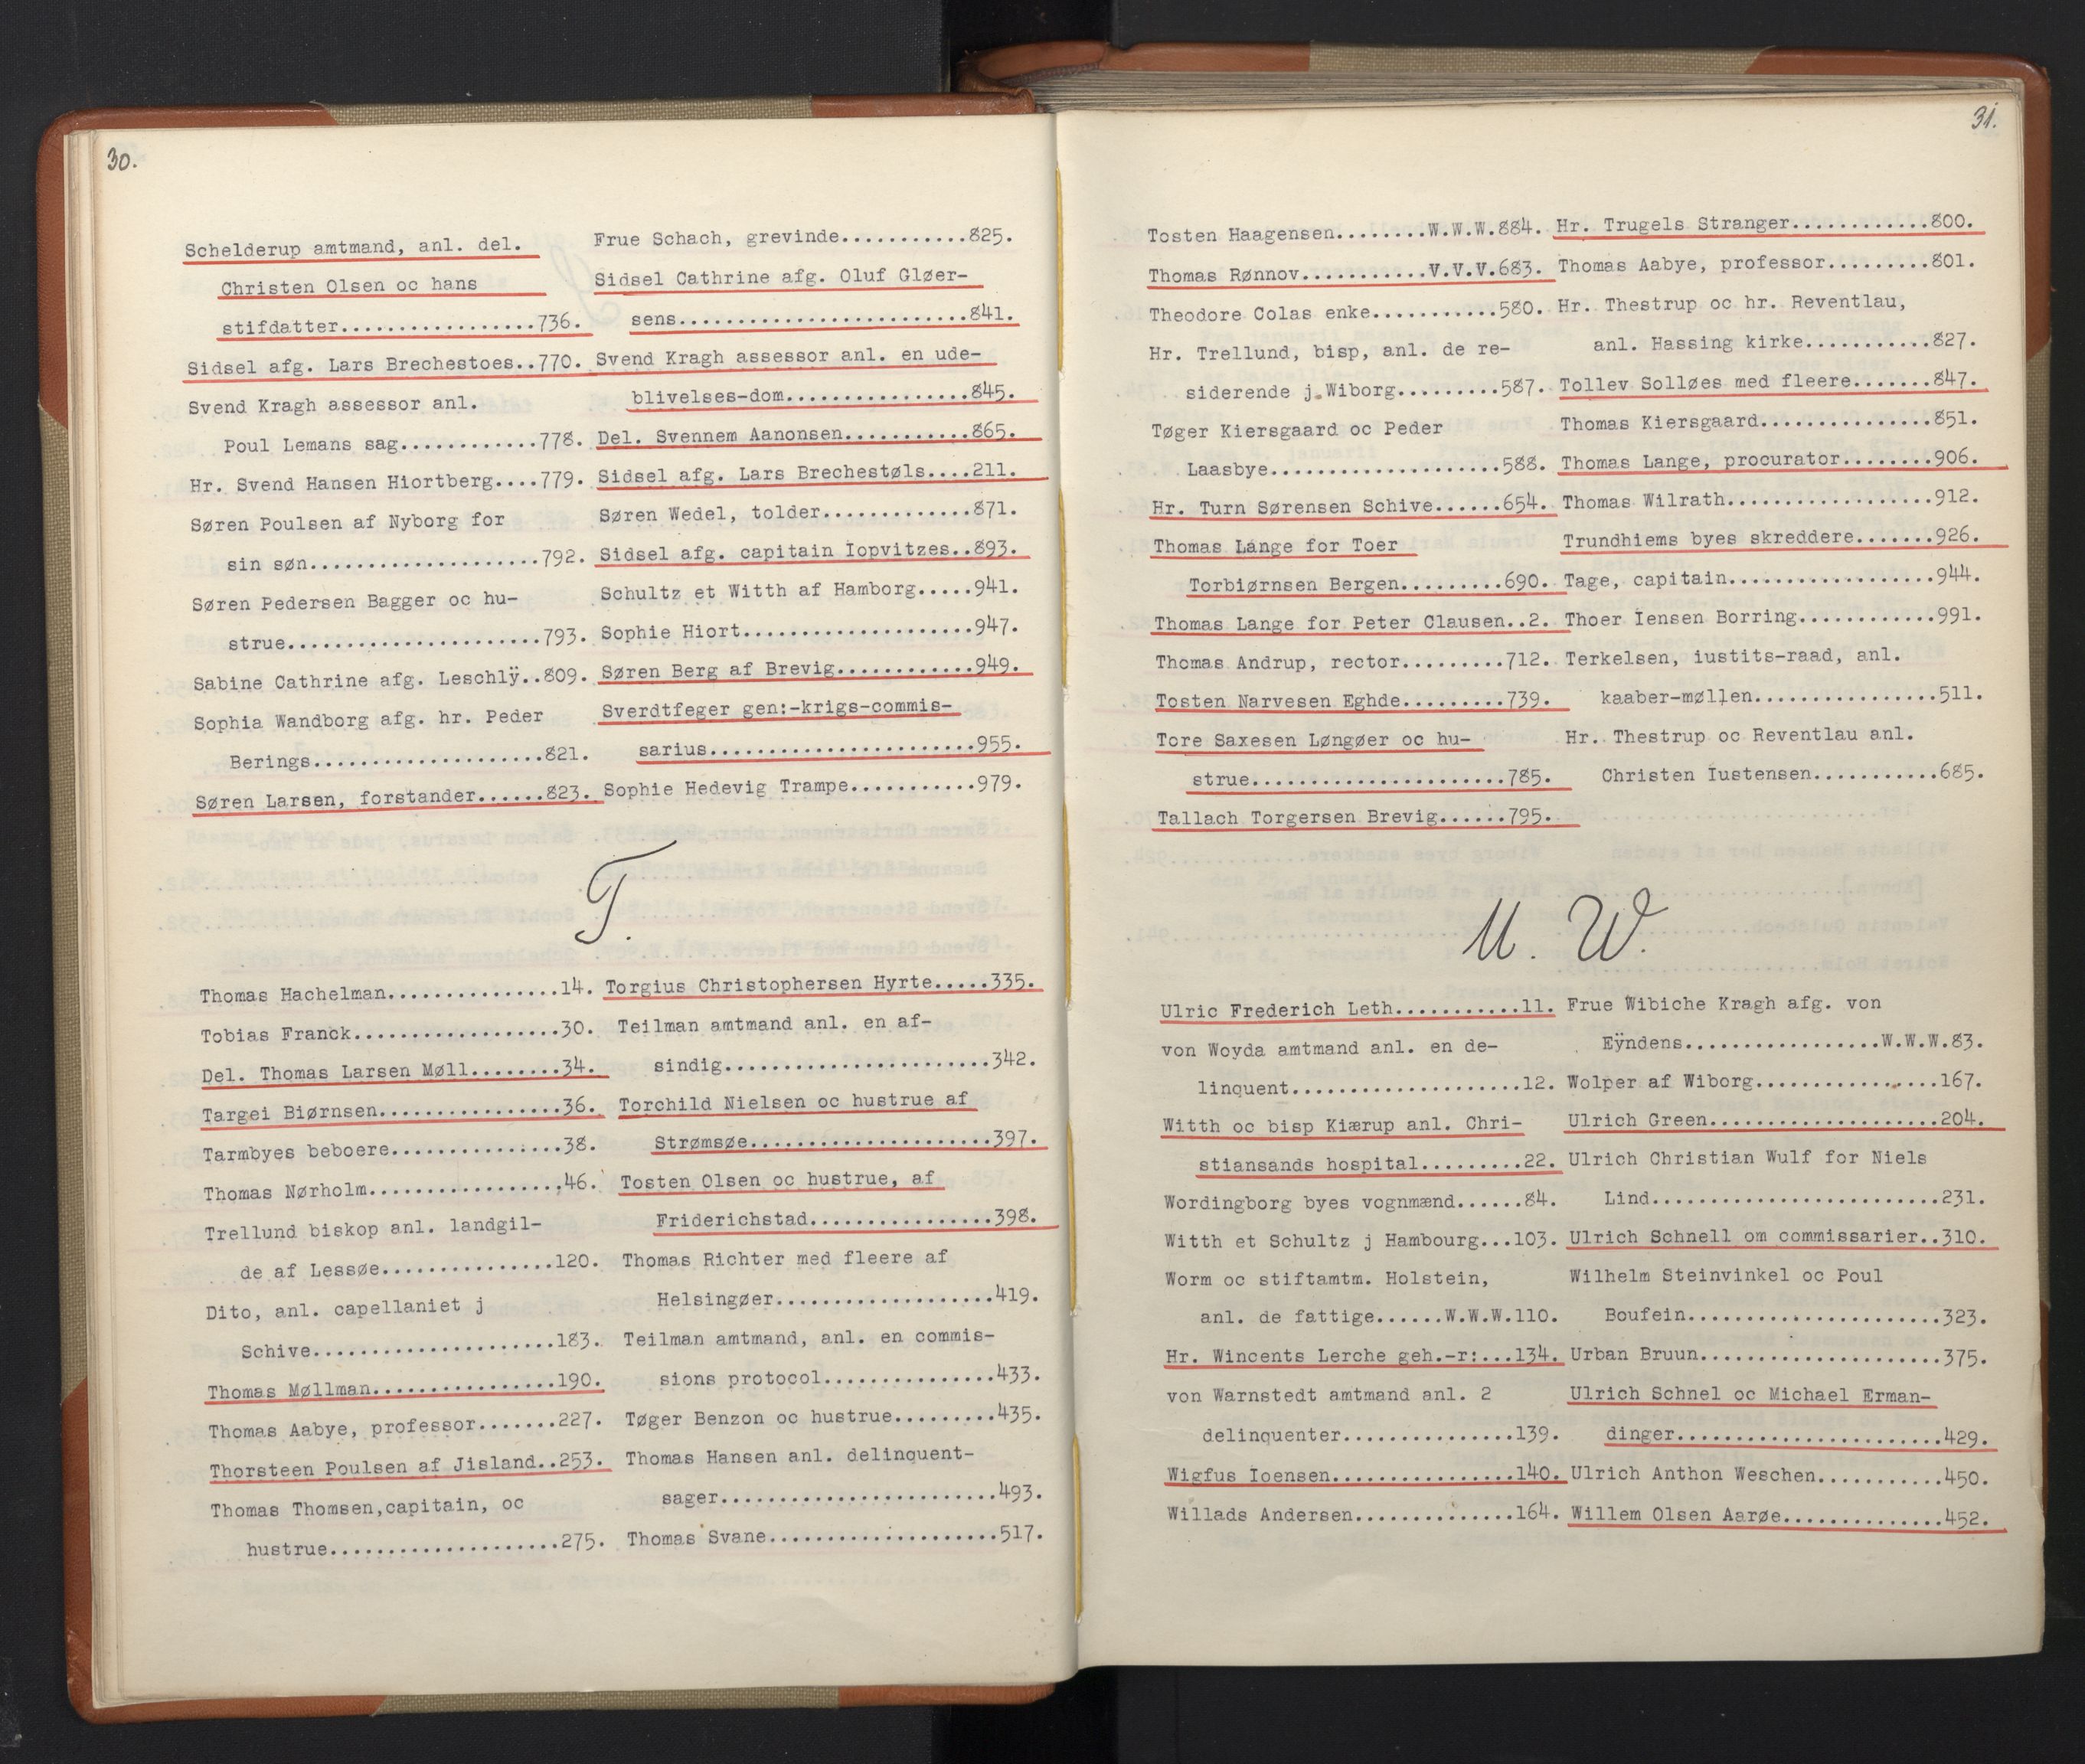 30.
Schelderup amtmand, anl. del.
Christen Olsen oc hans
stifdatter.................736.
Sidsel afg. Lars Brechestoes..770.
Svend Kragh assessor anl.
Poul Lemans sag............778.
Hr. Svend Hansen Hiortberg....779.
Søren Poulsen af Nyborg for
sin søn....................792.
Søren Pedersen Bagger oc hu-
strue......................793.
Sabine Cathrine afg. Leschlÿ..809.
Sophia Wandborg afg. hr. Peder
Berings....................821.
Søren Larsen, forstander......823.
Frue Schach, grevinde...........825.
Sidsel Cathrine afg. Oluf Gløer-
sens.........................841.
Svend Kragh assessor anl. en ude-
blivelses-dom................845.
Del. Svennem Aanonsen...........865.
Sidsel afg. Lars Brechestøls....211.
Søren Wedel, tolder.............871.
Sidsel afg. capitain Iopvitzes..893.
Schultz et Witth af Hamborg.....941.
Sophie Hiort....................947.
Søren Berg af Brevig............949.
Sverdtfeger gen:-krigs-commis-
sarius.......................955.
Sophie Hedevig Trampe...........979.
T.
Thomas Hachelman...............14.
Tobias Franck..................30.
Del. Thomas Larsen Møll........34.
Targei Biørnsen................36.
Tarmbyes beboere...............38.
Thomas Nørholm.................46.
Trellund biskop anl. landgil-
de af Lessøe...............120.
Dito, anl. capellaniet j
Schive.....................183.
Thomas Møllman................190.
Thomas Aabye, professor.......227.
Thorsteen Poulsen af Jisland..253.
Thomas Thomsen,capitain, oc
hustrue....................275.
Torgius Christophersen Hyrte.....335.
Teilman amtmand anl. en af-
sindig.......................342.
Torchild Nielsen oc hustrue af
Strømsøe.....................397.
Tosten Olsen oc hustrue, af
Friderichstad................398.
Thomas Richter med fleere af
Helsingøer...................419.
Teilman amtmand, anl. en commis-
sions protocol...............433.
Tøger Benzon oc hustrue.........435.
Thomas Hansen anl. delinquent-
sager........................493.
Thomas Svane....................517.
31.
Tosten Haagensen........W.W.W.884.
Thomas Rønnov...........V.V.V.683.
Theodore Colas enke...........580.
Hr. Trellund, bisp, anl. de re-
siderende j Wiborg.........587.
Tøger Kiersgaard oc Peder
Laasbye....................588.
Hr. Turn Sørensen Schive......654.
Thomas Lange for Toer
Torbiørnsen Bergen.........690.
Thomas Lange for Peter Clausen..2.
Thomas Andrup, rector.........712.
Tosten Narvesen Eghde.........739.
Tore Saxesen Løngøer oc hu-
strue......................785.
Tallach Torgersen Brevig......795.
Hr. Trugels Stranger............800.
Thomas Aabye, professor.........801.
Hr. Thestrup oc hr. Reventlau,
anl. Hassing kirke...........827.
Tollev Solløes med fleere.......847.
Thomas Kiersgaard...............851.
Thomas Lange, procurator........906.
Thomas Wilrath..................912.
Trundhiems byes skreddere.......926.
Tage, capitain..................944.
Thoer Iensen Borring............991.
Terkelsen, iustits-raad, anl.
kaaber-møllen................511.
Hr. Thestrup oc Reventlau anl.
Christen Iustensen...........685.
U. W.
Ulric Frederich Leth...........11.
von Woyda amtmand anl. en de-
linquent....................12.
Witth oc bisp Kiærup anl. Chri-
stiansands hospital.........22.
Wordingborg byes vognmænd......84.
Witth et Schultz j Hambourg...103.
Worm oc stiftamtm. Holstein,
anl. de fattige......W.W.W.110.
Hr. Wincents Lerche geh.-r:...134.
von Warnstedt amtmand anl. 2
delinquenter...............139.
Wigfus Ioensen................140.
Willads Andersen..............164.
Frue Wibiche Kragh afg. von
Eÿndens.................W.W.W.83.
Wolper af Wiborg................167.
Ulrich Green....................204.
Ulrich Christian Wulf for Niels
Lind.........................231.
Ulrich Schnell om commissarier..310.
Wilhelm Steinvinkel oc Poul
Boufein......................323.
Urban Bruun.....................375.
Ulrich Schnel oc Michael Erman-
dinger.......................429.
Ulrich Anthon Weschen...........450.
Willem Olsen Aarøe..............452.